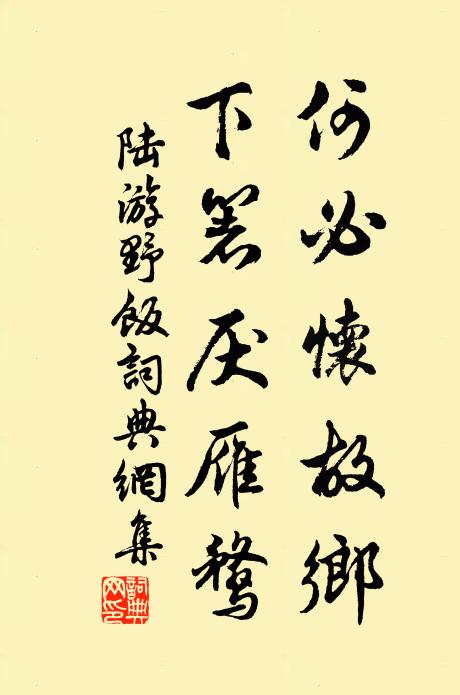 何必懷故鄉
下箸厌雁鶩
陸游野飯詞典網集
詞典网印